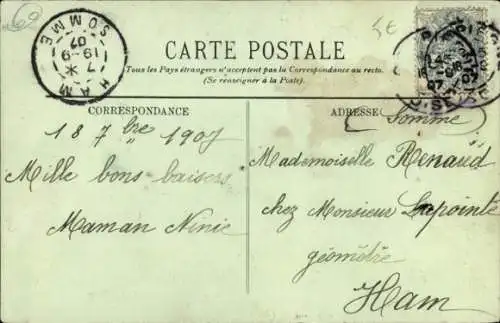 5€
CARTE POSTALE
Tous les Pays étrangers n'acceptent pas la Correspondance au recto.
(Se renseigner à la Poste).
HAM
7 *
19-9
07
SOMME
CORRESPONDANCE
18 7bre 1907
Mille bons baisers
Maman Ninie
ADRESSE
(Somme)
Mademoiselle Renaud
chez Monsieur Lapointe
géomètre
Ham